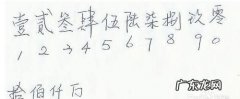 壹贰叁肆伍陆柒捌玖零
1 2 3 4 5 6 7 8 9 0
拾佰仟万
广东龙网